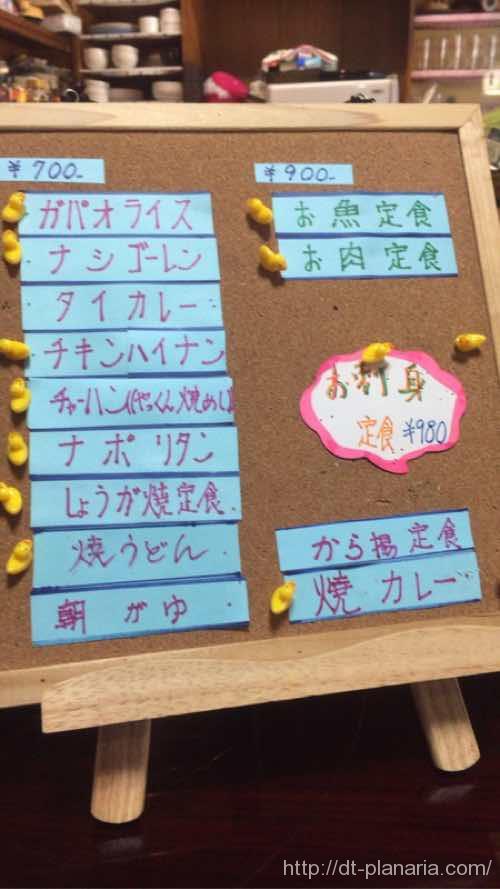 ¥700-
ガパオライス
ナシゴーレン
タイカレー
チキンハイナン
チャーハン(やっくん焼めし)
ナポリタン
しょうが焼定食
焼うどん
朝がゆ
¥900-
お魚定食
お肉定食
お刺身
定食 ¥980
から揚定食
焼カレー
http://dt-planaria.com/